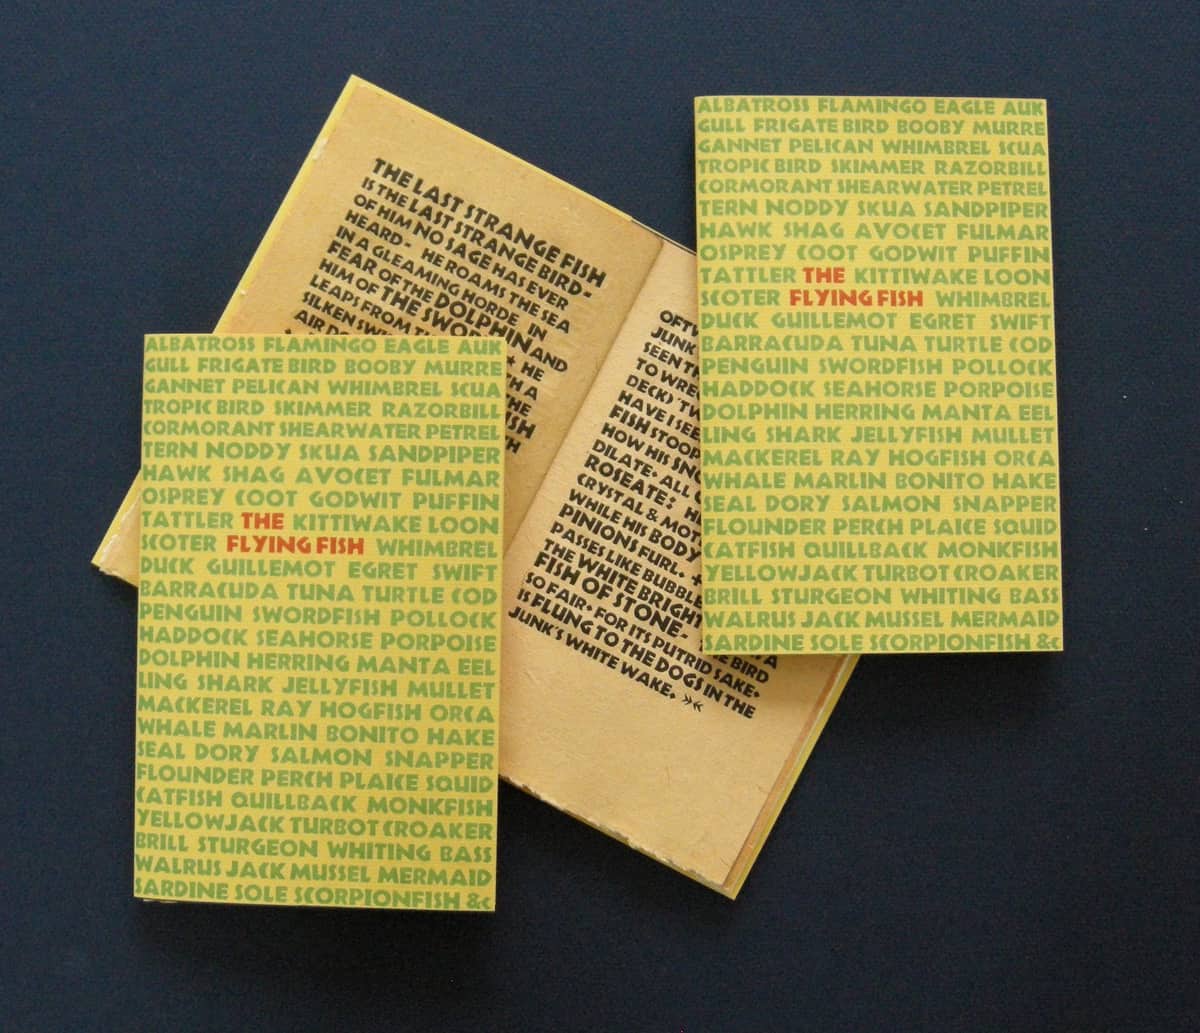 THE LAST STRANGE FISH
IS THE LAST STRANGE BIRD-
OF HIM NO SAGE HAS EVER
HEARD- HE ROAMS THE SEA
IN A GLEAMING HORDE IN
FEAR OF THE DOLPHIN AND
HIM OF THE SWORD
LEAPS FROM
SILKEN
AIR
HE
A
THE
JUNK
SEEN
TO
DECK)
HAVE I
FISH STOOP
HOW HIS
DILATE• ALL
ROSEATE:
CRYSTAL &
WHILE HIS BODY
PINIONS FURL• +
PASSES LIKE BUBBLE
THE WHITE BRIGHT
FISH OF STONE-
SO FAIR• FOR ITS PUTRID SAKE•
BIRD
IS FLUNG TO THE DOGS IN THE
JUNK'S WHITE WAKE. »«
ALBATROSS FLAMINGO EAGLE AUK
GULL FRIGATE BIRD BOOBY MURRE
GANNET PELICAN WHIMBREL SCUA
TROPIC BIRD SKIMMER RAZORBILL
CORMORANT SHEARWATER PETREL
TERN NODDY SKUA SANDPIPER
HAWK SHAG AVOCET FULMAR
OSPREY COOT GODWIT PUFFIN
TATTLER THE KITTIWAKE LOON
SCOTER FLYING FISH WHIMBREL
DUCK GUILLEMOT EGRET SWIFT
BARRACUDA TUNA TURTLE COD
PENGUIN SWORDFISH POLLOCK
HADDOCK SEAHORSE PORPOISE
DOLPHIN HERRING MANTA EEL
LING SHARK JELLYFISH MULLET
MACKEREL RAY HOGFISH ORCA
WHALE MARLIN BONITO HAKE
SEAL DORY SALMON SNAPPER
FLOUNDER PERCH PLAICE SQUID
CATFISH QUILLBACK MONKFISH
YELLOWJACK TURBOT CROAKER
BRILL STURGEON WHITING BASS
WALRUS JACK MUSSEL MERMAID
SARDINE SOLE SCORPIONFISH &C
ALBATROSS FLAMINGO EAGLE AUK
GULL FRIGATE BIRD BOOBY MURRE
GANNET PELICAN WHIMBREL SCUA
TROPIC BIRD SKIMMER RAZORBILL
CORMORANT SHEARWATER PETREL
TERN NODDY SKUA SANDPIPER
HAWK SHAG AVOCET FULMAR
OSPREY COOT GODWIT PUFFIN
TATTLER THE KITTIWAKE LOON
SCOTER FLYING FISH WHIMBREL
DUCK GUILLEMOT EGRET SWIFT
BARRACUDA TUNA TURTLE COD
PENGUIN SWORDFISH POLLOCK
HADDOCK SEAHORSE PORPOISE
DOLPHIN HERRING MANTA EEL
LING SHARK JELLYFISH MULLET
MACKEREL RAY HOGFISH ORCA
WHALE MARLIN BONITO HAKE
SEAL DORY SALMON SNAPPER
FLOUNDER PERCH PLAICE SQUID
CATFISH QUILLBACK MONKFISH
YELLOWJACK TURBOT CROAKER
BRILL STURGEON WHITING BASS
WALRUS JACK MUSSEL MERMAID
SARDINE SOLE SCORPIONFISH &C